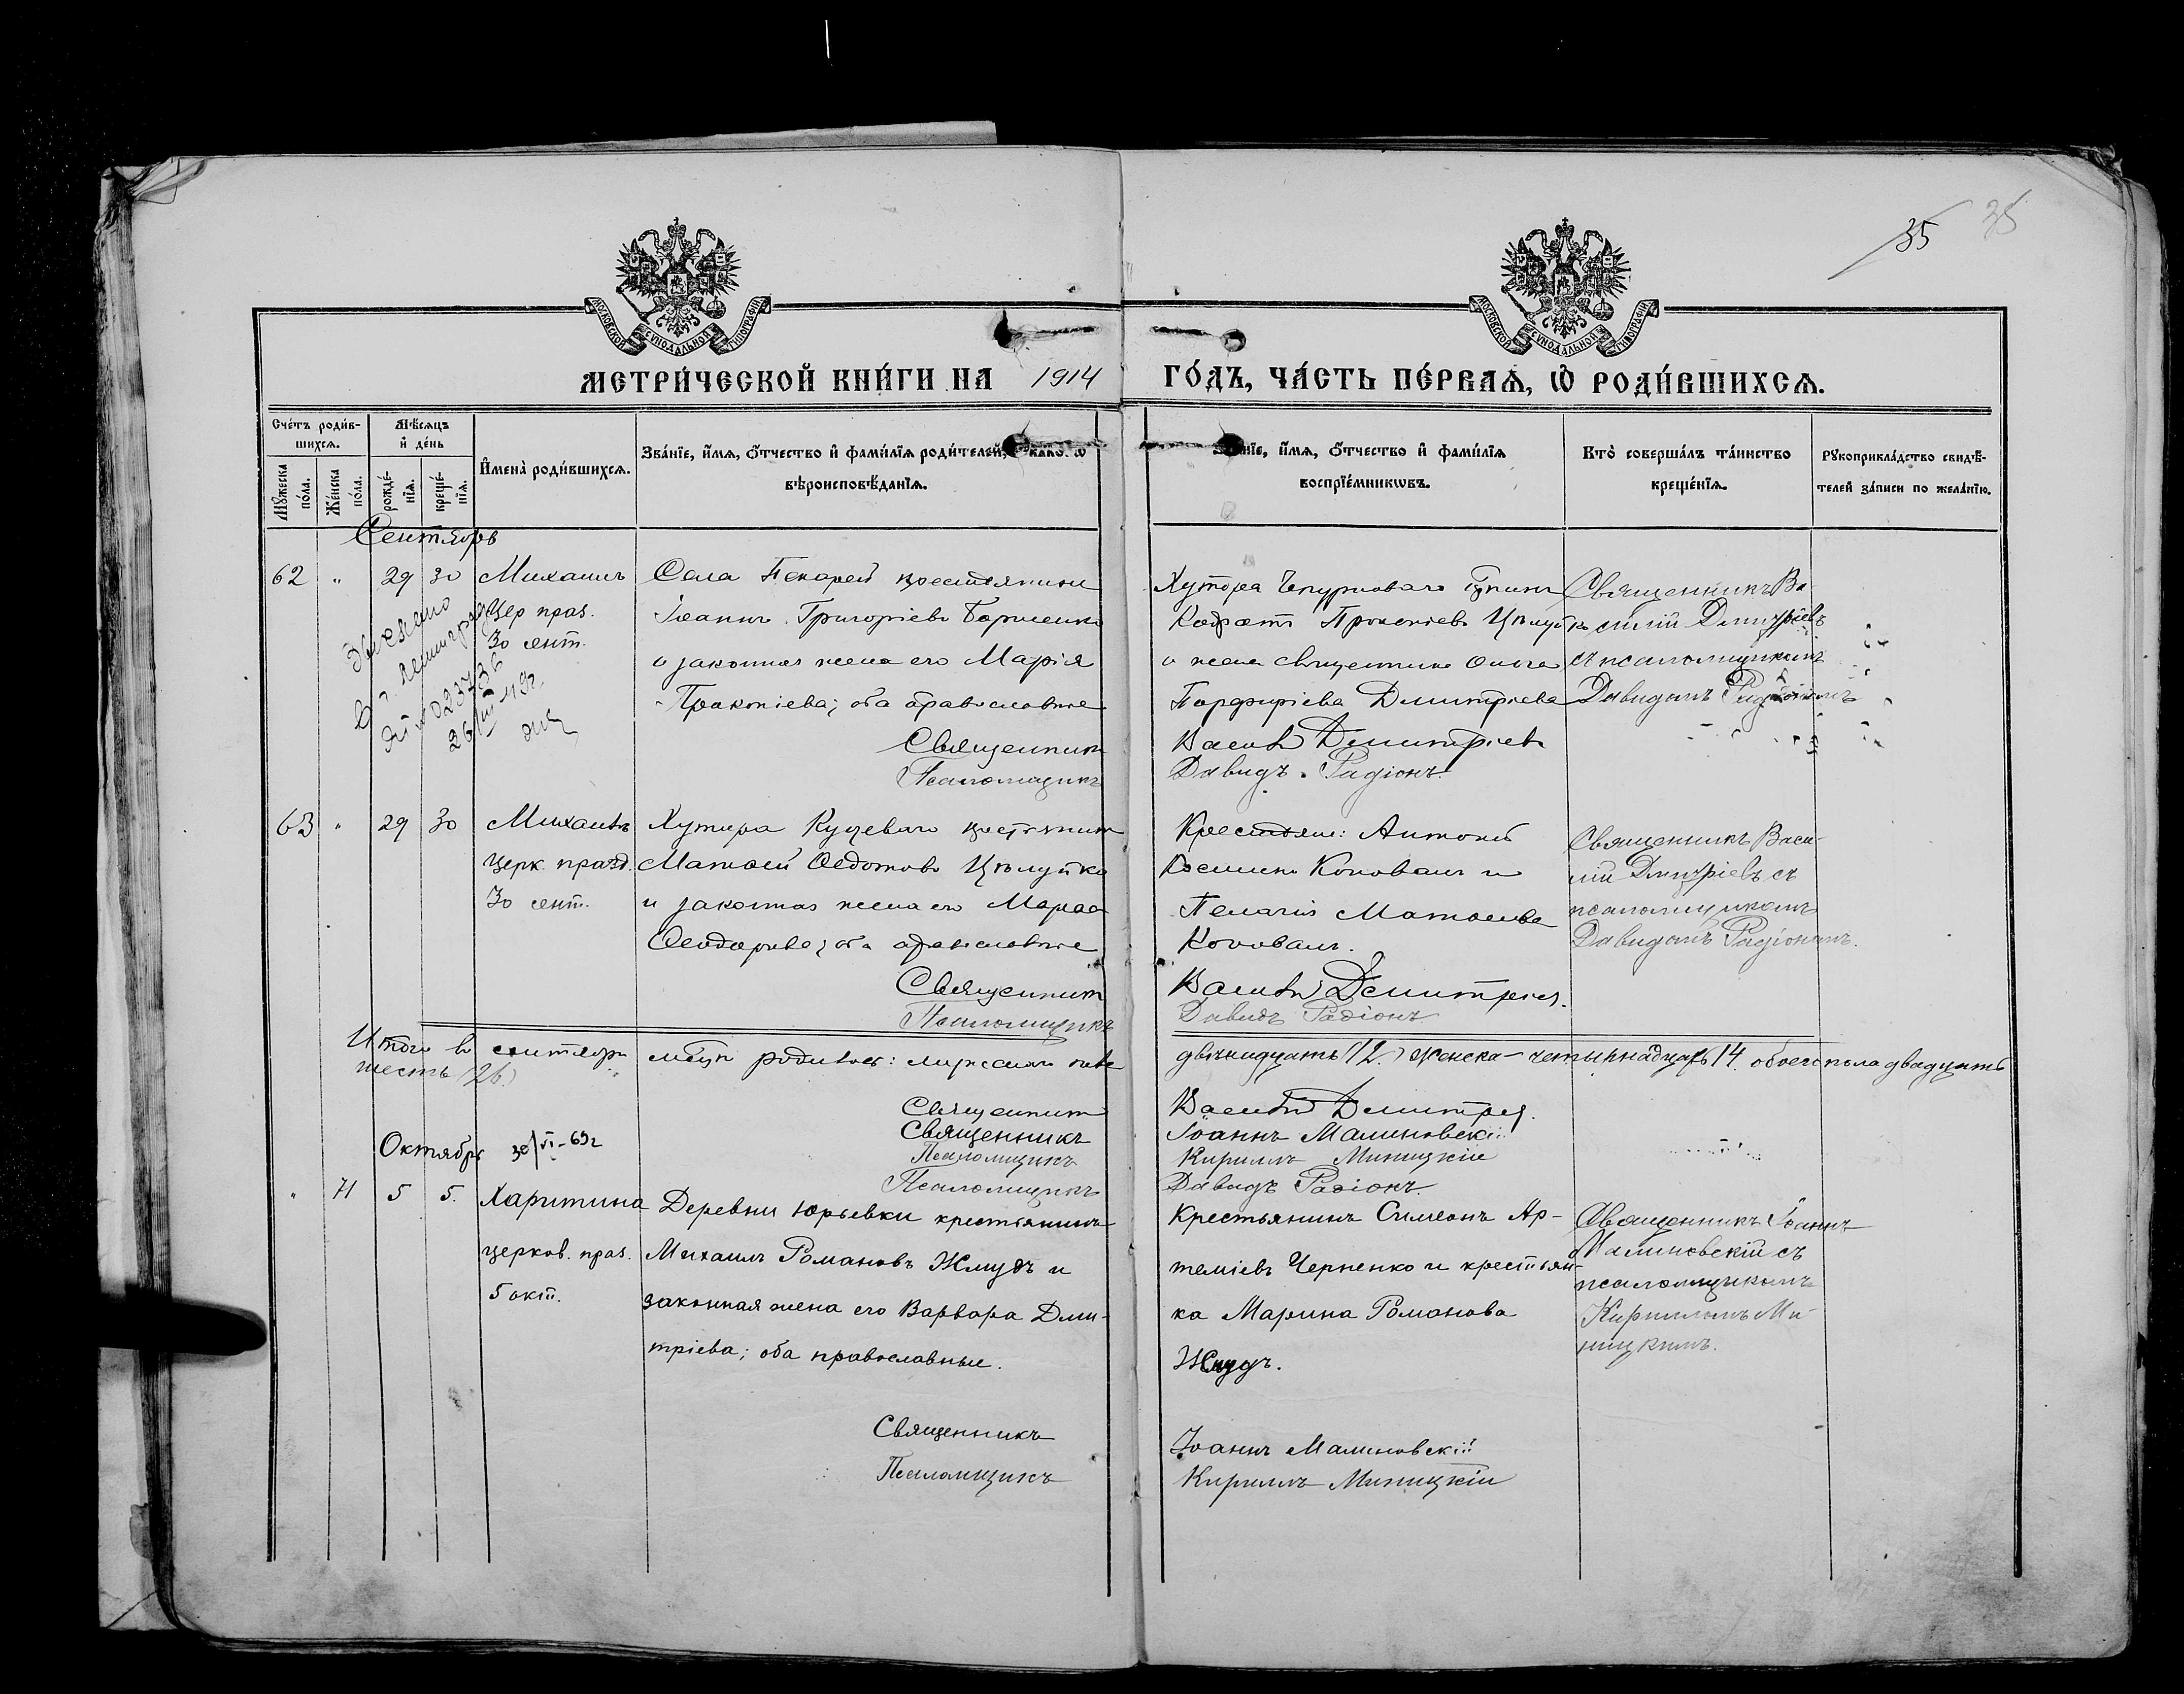 35 35
МОСКОВСКОЙ СУНОДАЛЬНОЙ ТИПОГРАФІИ
МОСКОВСКОЙ СУНОДАЛЬНОЙ ТИПОГРАФІИ
МЕТРИ́ЧЕСКОЙ КНИ́ГИ НА 1914 ГО́ДЪ, ЧА́СТЬ ПЕ́РВАѦ, Ѡ РОДИ́ВШИХСѦ.
Сче́тъ роди́в-
шихсѧ.
Мꙋжеска по́ла.
Же́нска по́ла.
Мѣ́сѧцъ
и де́нь
рожде́-нїѧ.
креще́-нїѧ.
Имена̀ роди́вшихсѧ.
Зва́нїе, и́мѧ, о́тчество и фами́лїѧ роди́телей, како́гѡ
вѣроисповѣ́данїѧ.
Зва́нїе, и́мѧ, о́тчество и фами́лїѧ
воспрїе́мникѡвъ.
Кто̀ соверша́лъ та́инство
креще́нїѧ.
Рꙋкоприкла́дство свидѣ́-
телей за́писи по жела́нїю.
Сентябрь
62 " 29 30 Михаилъ
Цер праз.
30 сент.
Села Пекарей крестьянинъ
Іоаннъ Григоріевъ
и законная жена его Марія
Прокопіева; оба православные
Священникъ
Псаломщикъ
Хутора
Прокопіевъ
и жена священника Ольга
Порфиріева Димитріева
Василій Димитріевъ
Давидъ Радіонъ
Священникъ Ва-
силій Дмитріевъ
съ псаломщикомъ
Давидомъ Радіономъ
63 " 29 30 Михаилъ
Церк. празд.
30 сент.
Хутора крестьянинъ
Матѳей Ѳедотовъ
и законная жена его Марѳа
Ѳеодорова; оба православные
Священникъ
Псаломщикъ
Крестьяне: Антоній
Коновалъ и
Пелагія Матѳеева
Коновалъ.
Василій Димитріевъ.
Давидъ Радіонъ
Священникъ Васи-
лій Дмитріевъ съ
псаломщикомъ
Давидомъ Радіономъ.
Итого въ сентябрѣ родилось: мужеска пола двѣнадцать (12.) женска - четырнадцать 14. обоего пола двадцать
шесть (26.)
Священникъ Василій Димитріевъ.
Священникъ Іоаннъ Малиновскій
Псаломщикъ Кириллъ Миницкій
Псаломщикъ Давидъ Радіонъ.
Октябрь
" 71 5 5. Харитина
церков. праз.
5 окт.
Деревни Юрьевки крестьянинъ
Михаилъ Романовъ Жмудъ и
законная жена его Варвара Дми-
тріева; оба православные.
Священникъ
Псаломщикъ
Крестьянинъ Симеонъ Ар-
теміевъ Черненко и крестьян-
ка Марина Романова
Жмудъ.
Іоаннъ Малиновскій
Кириллъ Миницкій
Священникъ Іоаннъ
Малиновскій съ
псаломщикомъ
Кирилломъ Ми-
ницкимъ.